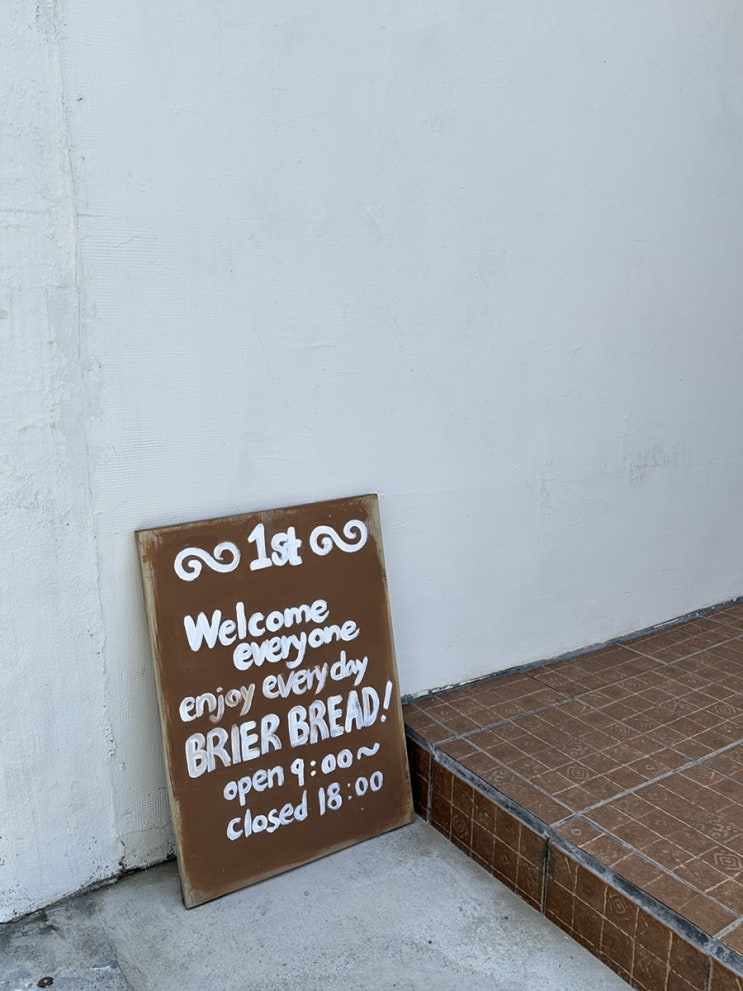 1st
Welcome
everyone
enjoy everyday
BRIER BREAD!
open 9:00~
closed 18:00